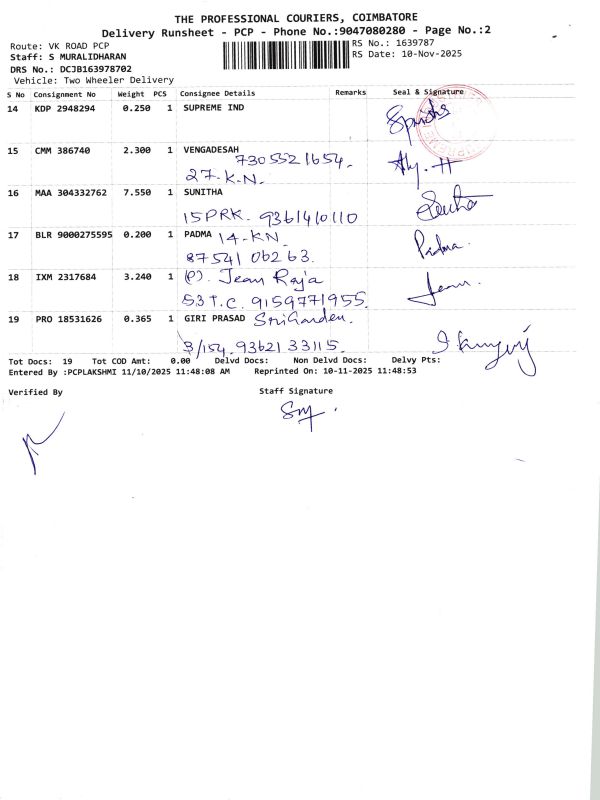 THE PROFESSIONAL COURIERS, COIMBATORE
Delivery Runsheet - PCP - Phone No.:9047080280 - Page No.:2
Route: VK ROAD PCP
RS No.: 1639787
Staff: S MURALIDHARAN
RS Date: 10-Nov-2025
DRS No.: DCJB163978702
Vehicle: Two Wheeler Delivery
S No Consignment No Weight PCS Consignee Details Remarks Seal & Signature
14 KDP 2948294 0.250 1 SUPREME IND
15 CMM 386740 2.300 1 VENGADESAH
7305521654.
27-K.N.
16 MAA 304332762 7.550 1 SUNITHA
15PRK. 9361410110
17 BLR 9000275595 0.200 1 PADMA 14-KN. Padma.
87541 06263.
18 IXM 2317684 3.240 1 (P). Jean Raja Jeam.
53 T.C. 9159771955.
19 PRO 18531626 0.365 1 GIRI PRASAD Sri Garden.
3/154. 93621 33115.
Tot Docs: 19 Tot COD Amt: 0.00 Delvd Docs: Non Delvd Docs: Delvy Pts:
Entered By :PCPLAKSHMI 11/10/2025 11:48:08 AM Reprinted On: 10-11-2025 11:48:53
Verified By Staff Signature